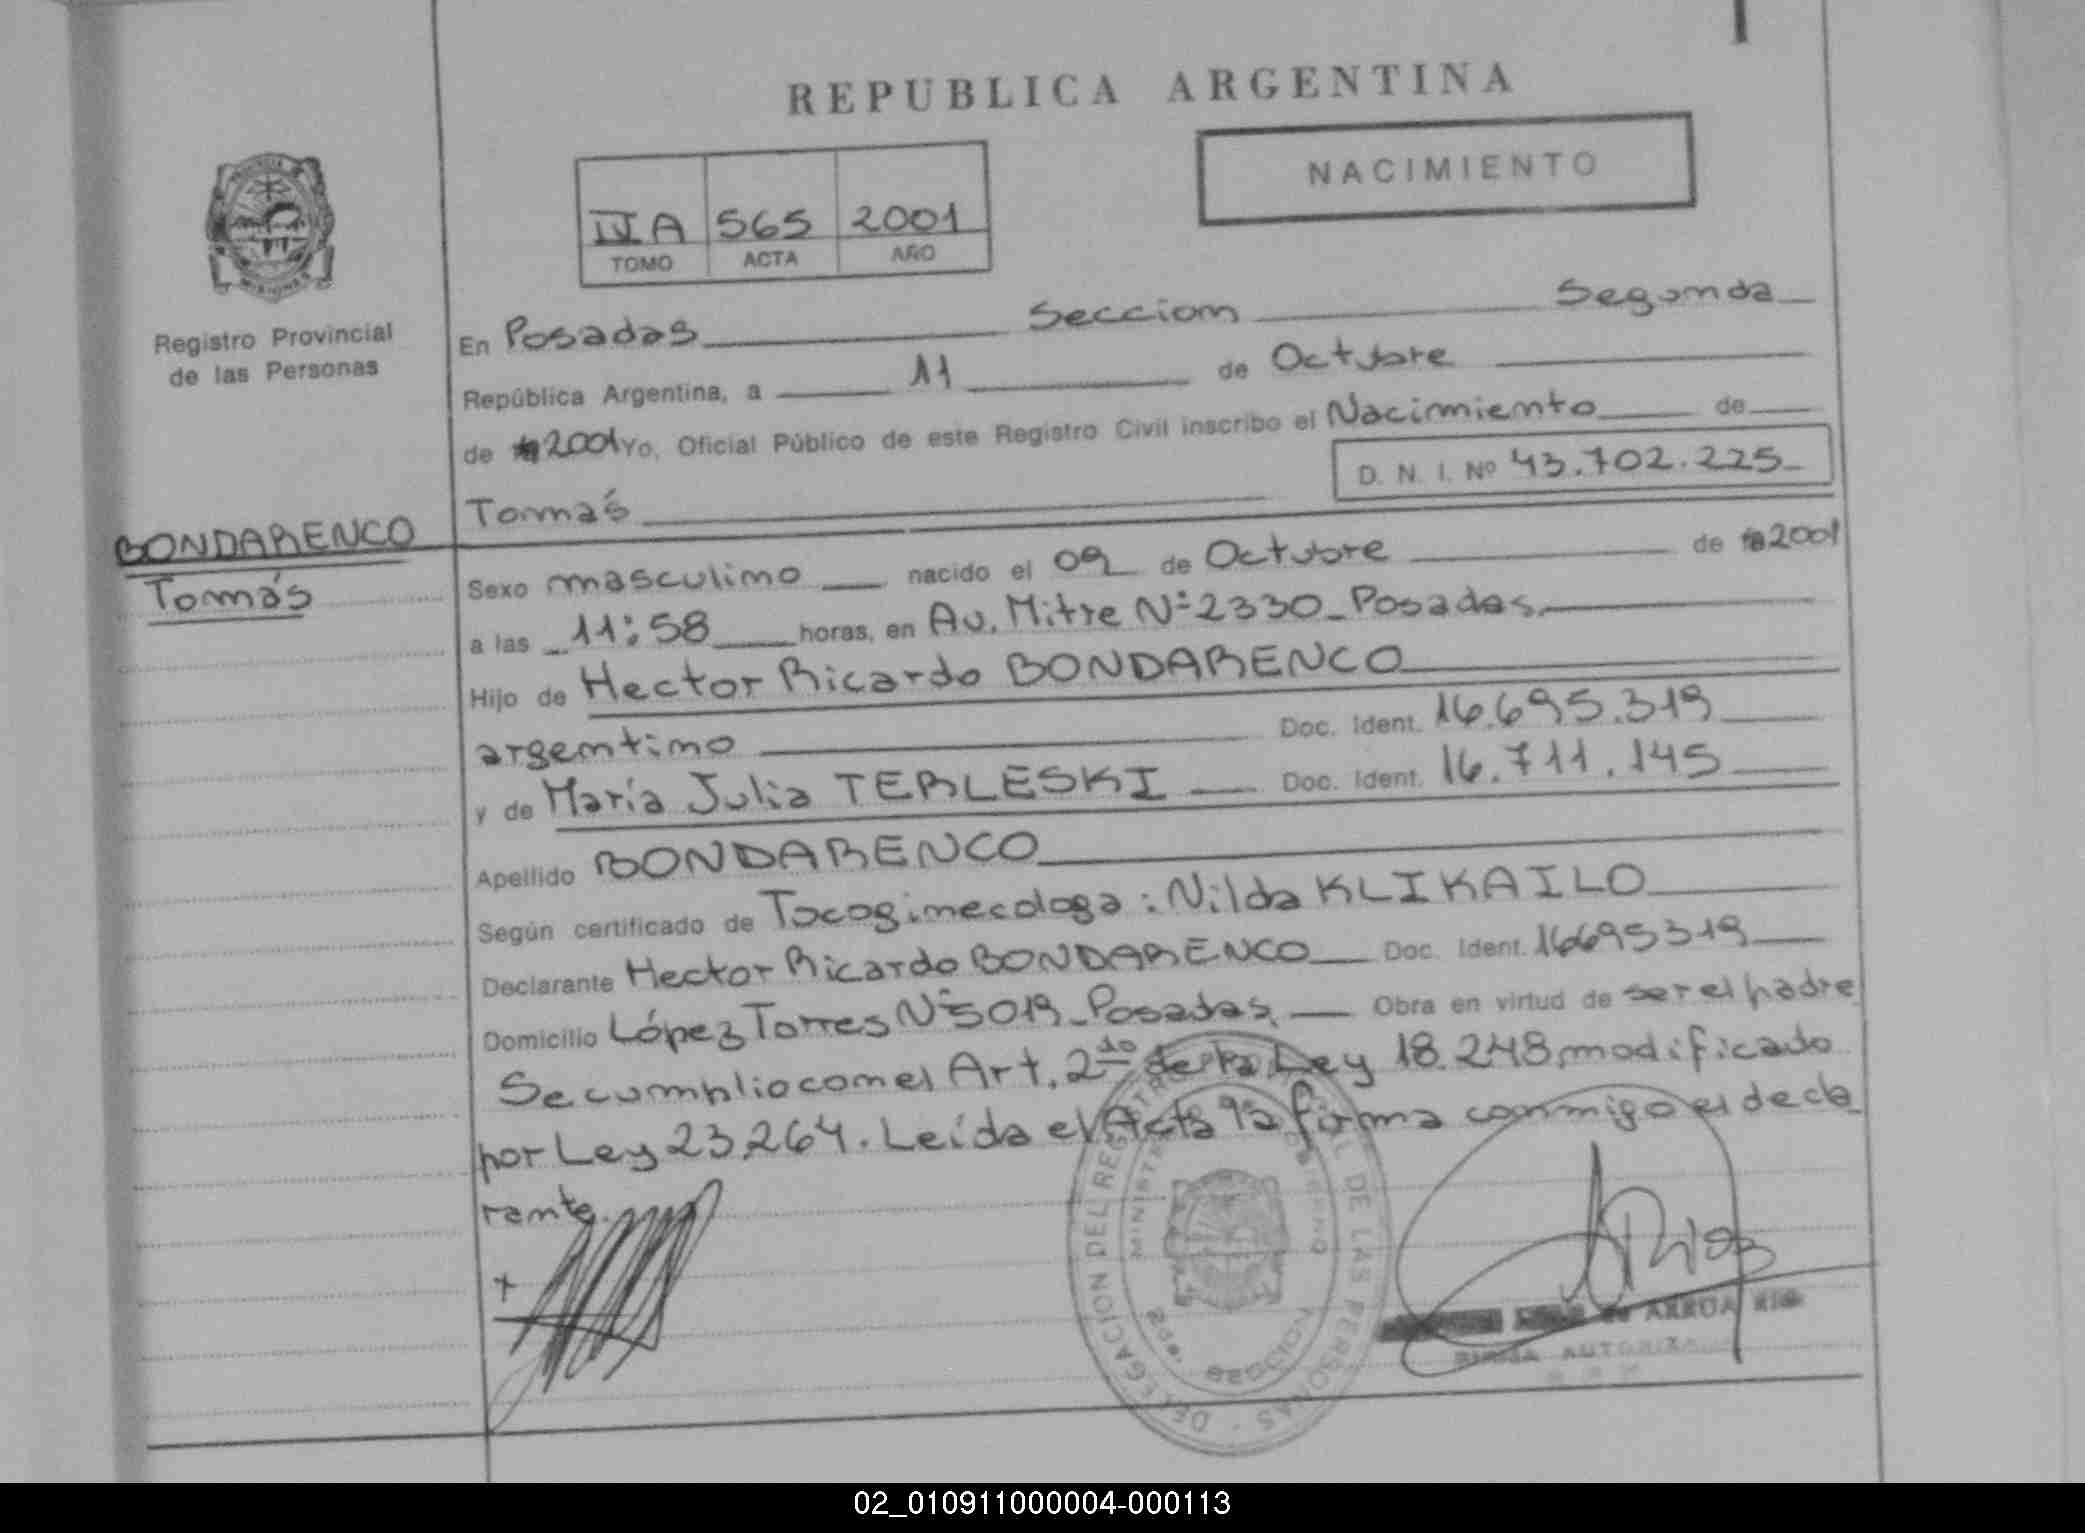 REPUBLICA ARGENTINA
NACIMIENTO
IVA 565 2001
TOMO ACTA AÑO
Registro Provincial
de las Personas
En Posadas Seccion Segunda
República Argentina, a 11 de Octubre
de 2001 Yo, Oficial Público de este Registro Civil inscribo el Nacimiento de
D. N. I. Nº 43.702.225
Tomás
BONDARENCO
Tomás
Sexo masculino nacido el 09 de Octubre de 2001
a las 11:58 horas, en Av. Mitre Nº 2330_Posadas.
Hijo de Hector Ricardo BONDARENCO
argentino Doc. Ident. 16.695.319
y de María Julia TERLESKI Doc. Ident. 16.711.145
Apellido BONDARENCO
Según certificado de Tocoginecologa: Nilda KLIKAILO
Declarante Hector Ricardo BONDARENCO Doc. Ident. 16695319
Domicilio López Torres Nº 5019_Posadas. Obra en virtud de ser el padre
Se cumplio con el Art. 2do de la Ley 18.248, modificado
por Ley 23.264. Leída el Acta la firma conmigo el decla
rante.
DELEGACION DEL REGISTRO DE LAS PERSONAS
SECCION
ARRUA
FIRMA AUTORIZADA
02_010911000004-000113